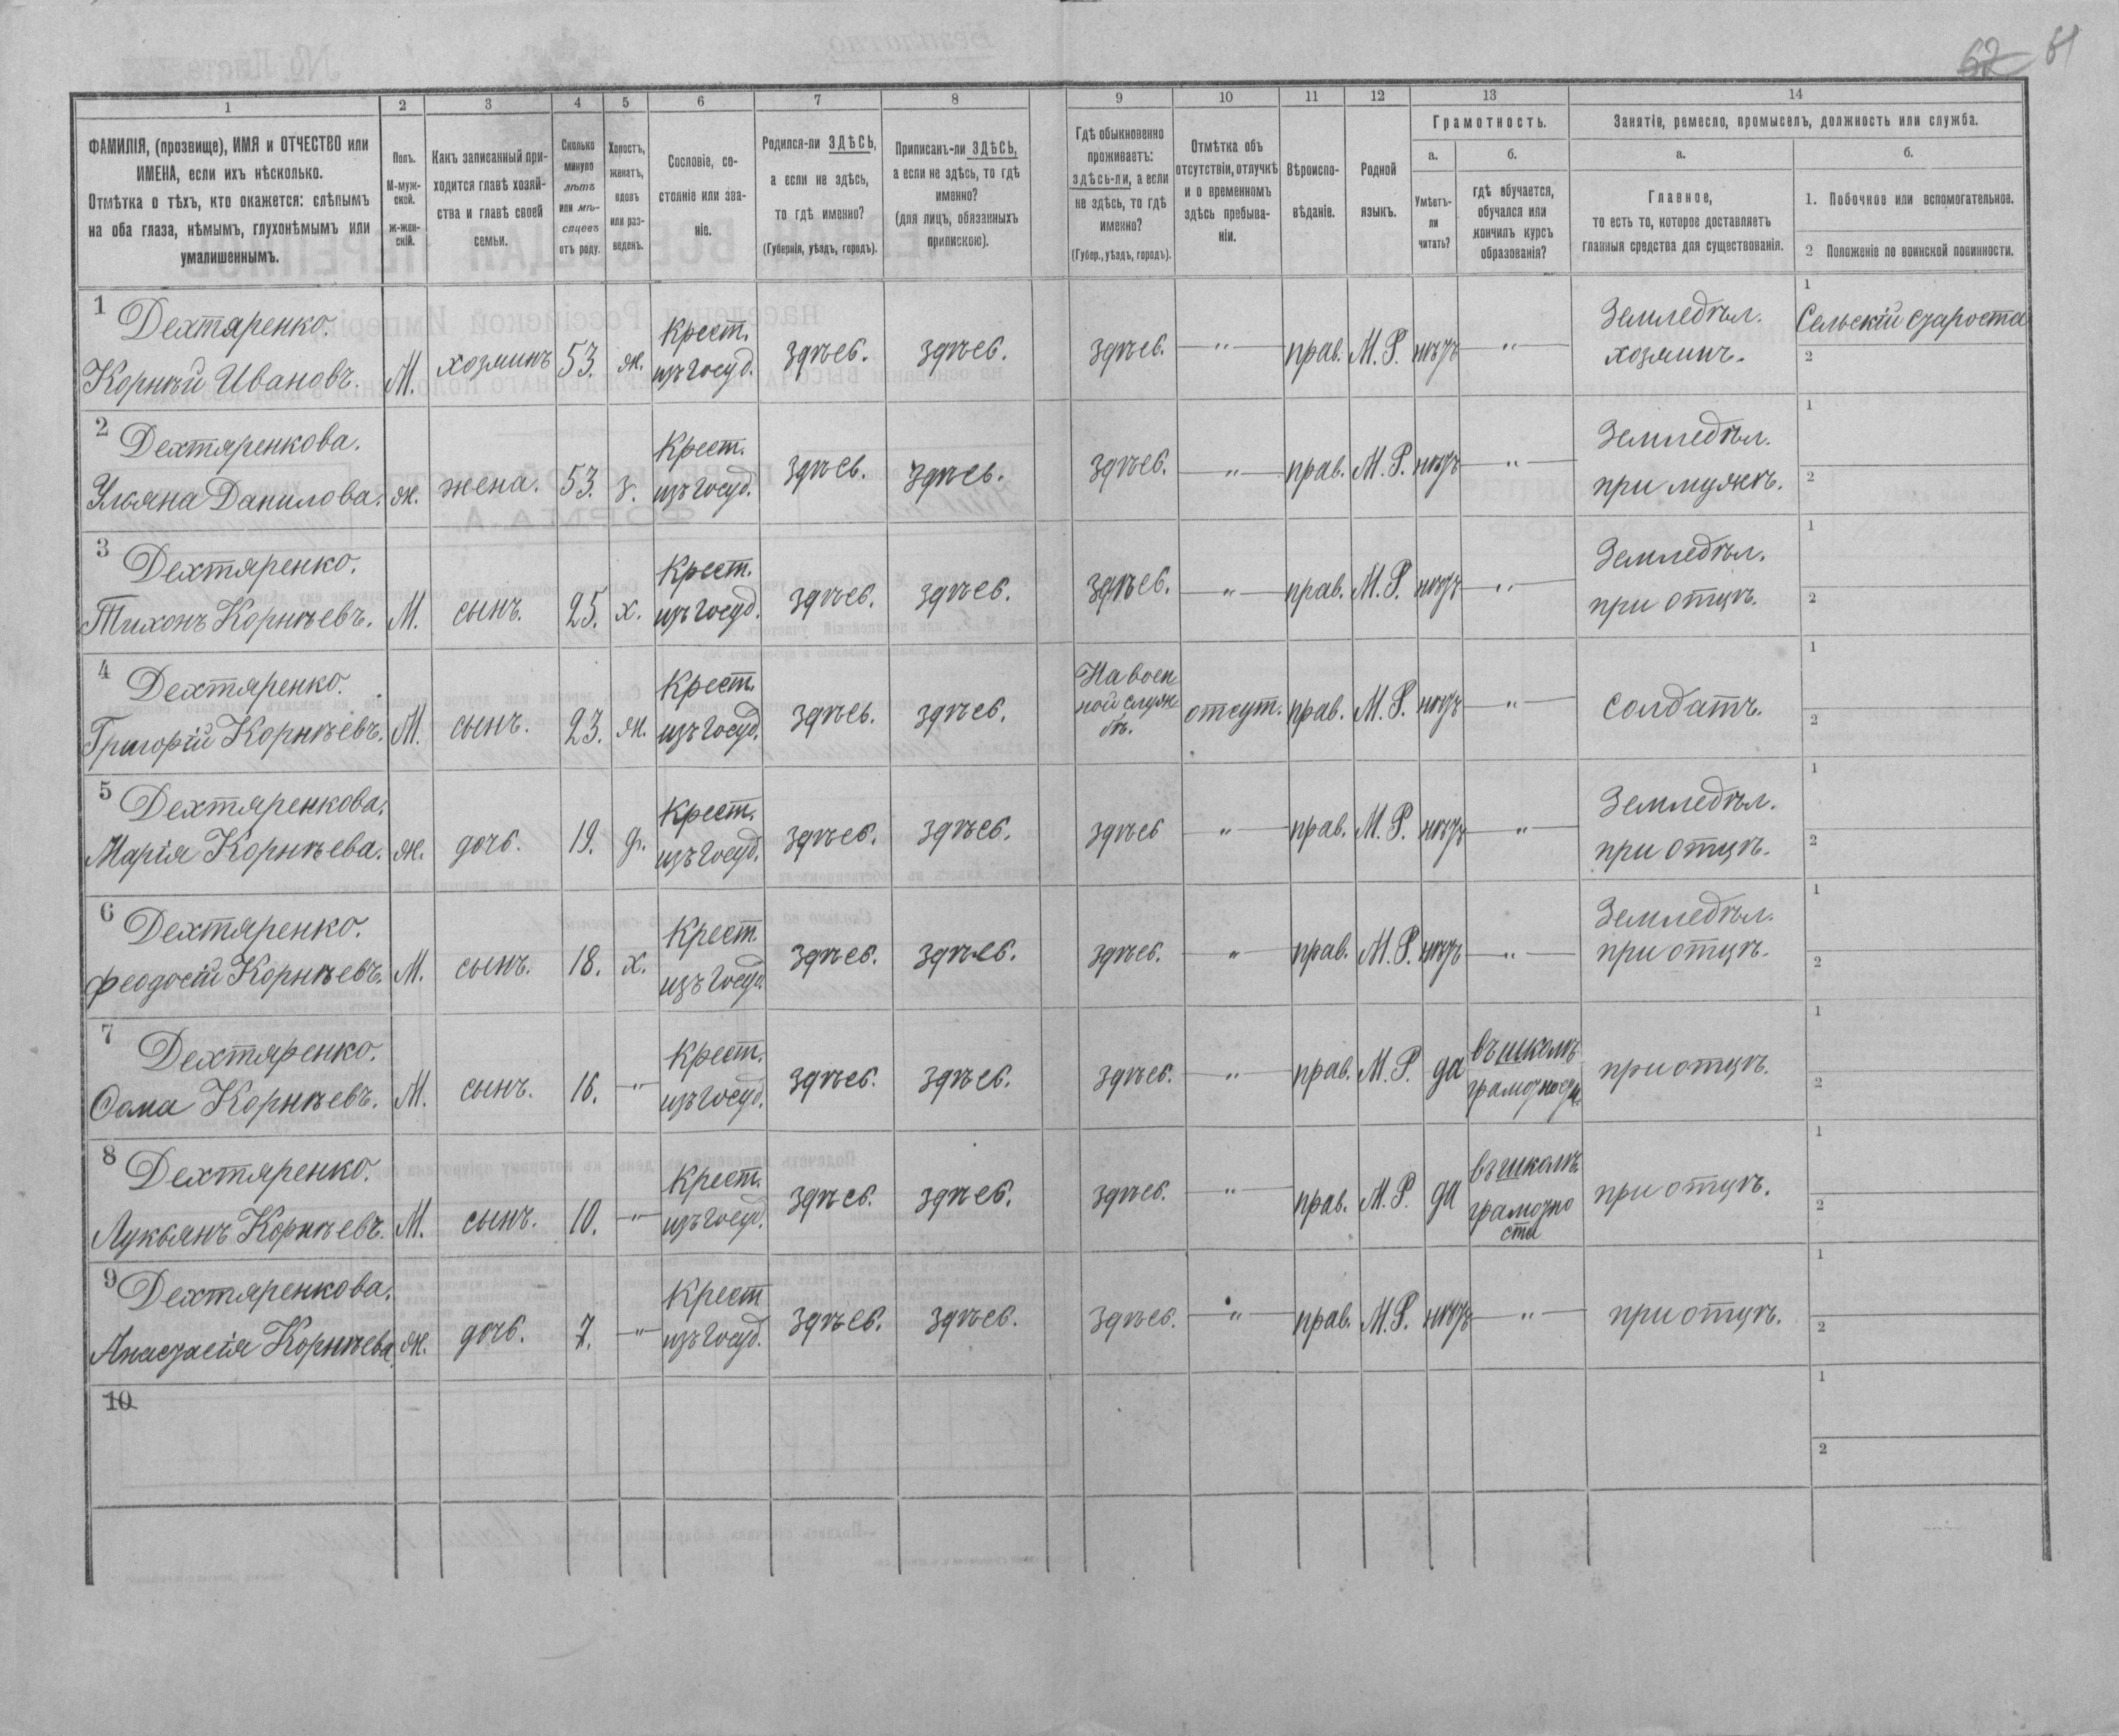 62 61
1 2 3 4 5 6 7 8 9 10 11 12 13 14
ФАМИЛІЯ, (прозвище), ИМЯ и ОТЧЕСТВО или
ИМЕНА, если ихъ нѣсколько.
Отмѣтка о тѣхъ, кто окажется: слѣпымъ
на оба глаза, нѣмымъ, глухонѣмымъ или
умалишеннымъ.
Полъ.
М-муж-
ской.
ж-жен-
скій.
Какъ записанный при-
ходится главѣ хозяй-
ства и главѣ своей
семьи.
Сколько
минуло
лѣтъ
или мѣ-
сяцевъ
отъ роду.
Холостъ,
женатъ,
вдовъ
или раз-
веденъ.
Сословіе, со-
стояніе или зва-
ніе.
Родился-ли ЗДѢСЬ,
а если не здѣсь,
то гдѣ именно?
(Губернія, уѣздъ, городъ).
Приписанъ-ли ЗДѢСЬ,
а если не здѣсь, то гдѣ
именно?
(для лицъ, обязанныхъ
припискою).
Гдѣ обыкновенно
проживаетъ:
здѣсь-ли, а если
не здѣсь, то гдѣ
именно?
(Губер., уѣздъ, городъ).
Отмѣтка объ
отсутствіи, отлучкѣ
и о временномъ
здѣсь пребыва-
ніи.
Вѣроиспо-
вѣданіе.
Родной
языкъ.
Грамотность.
а.
Умѣетъ-
ли
читать?
б.
гдѣ обучается,
обучался или
кончилъ курсъ
образованія?
Занятіе, ремесло, промыселъ, должность или служба.
а.
Главное,
то есть то, которое доставляетъ
главныя средства для существованія.
б.
1. Побочное или вспомогательное.
2 Положеніе по воинской повинности.
1 Дехтяренко. Крест. Земледѣл. 1 Сельскій староста
Корнѣй Ивановъ. М. хозяинъ 53. ж. изъ госуд. здѣсь. здѣсь. здѣсь. „ прав. М. Р. нѣтъ „ хозяинъ. 2
2 Дехтяренкова. Крест. Земледѣл. 1
Ульяна Данилова. ж. жена. 53. з. изъ госуд. здѣсь. здѣсь. здѣсь. „ прав. М. Р. нѣтъ „ при мужѣ. 2
3 Дехтяренко. Крест. Земледѣл. 1
Тихонъ Корнѣевъ. М. сынъ. 25. х. изъ госуд. здѣсь. здѣсь. здѣсь. „ прав. М. Р. нѣтъ „ при отцѣ. 2
4 Дехтяренко. Крест. На воен 1
Григорій Корнѣевъ. М. сынъ. 23. ж. изъ госуд. здѣсь. здѣсь. ной служ отсут. прав. М. Р. нѣтъ „ солдатъ. 2
бѣ.
5 Дехтяренкова. Крест. Земледѣл. 1
Марія Корнѣева. ж. дочь. 19. д. изъ госуд. здѣсь. здѣсь. здѣсь „ прав. М. Р. нѣтъ „ при отцѣ. 2
6 Дехтяренко. Крест. Земледѣл. 1
Феодосій Корнѣевъ. М. сынъ. 18. х. изъ госуд. здѣсь. здѣсь. здѣсь. „ прав. М. Р. нѣтъ „ при отцѣ. 2
7 Дехтяренко. Крест. въ школѣ 1
Ѳома Корнѣевъ. М. сынъ. 16. „ изъ госуд. здѣсь. здѣсь. здѣсь. „ прав. М. Р. да грамотности. при отцѣ. 2
8 Дехтяренко. Крест. въ школѣ 1
Лукьянъ Корнѣевъ. М. сынъ. 10. „ изъ госуд. здѣсь. здѣсь. здѣсь. „ прав. М. Р. да грамотно при отцѣ. 2
сти
9 Дехтяренкова. Крест 1
Анастасія Корнѣева. ж. дочь. 7. „ изъ госуд. здѣсь. здѣсь. здѣсь. „ прав. М. Р. нѣтъ „ при отцѣ. 2
10 1
2